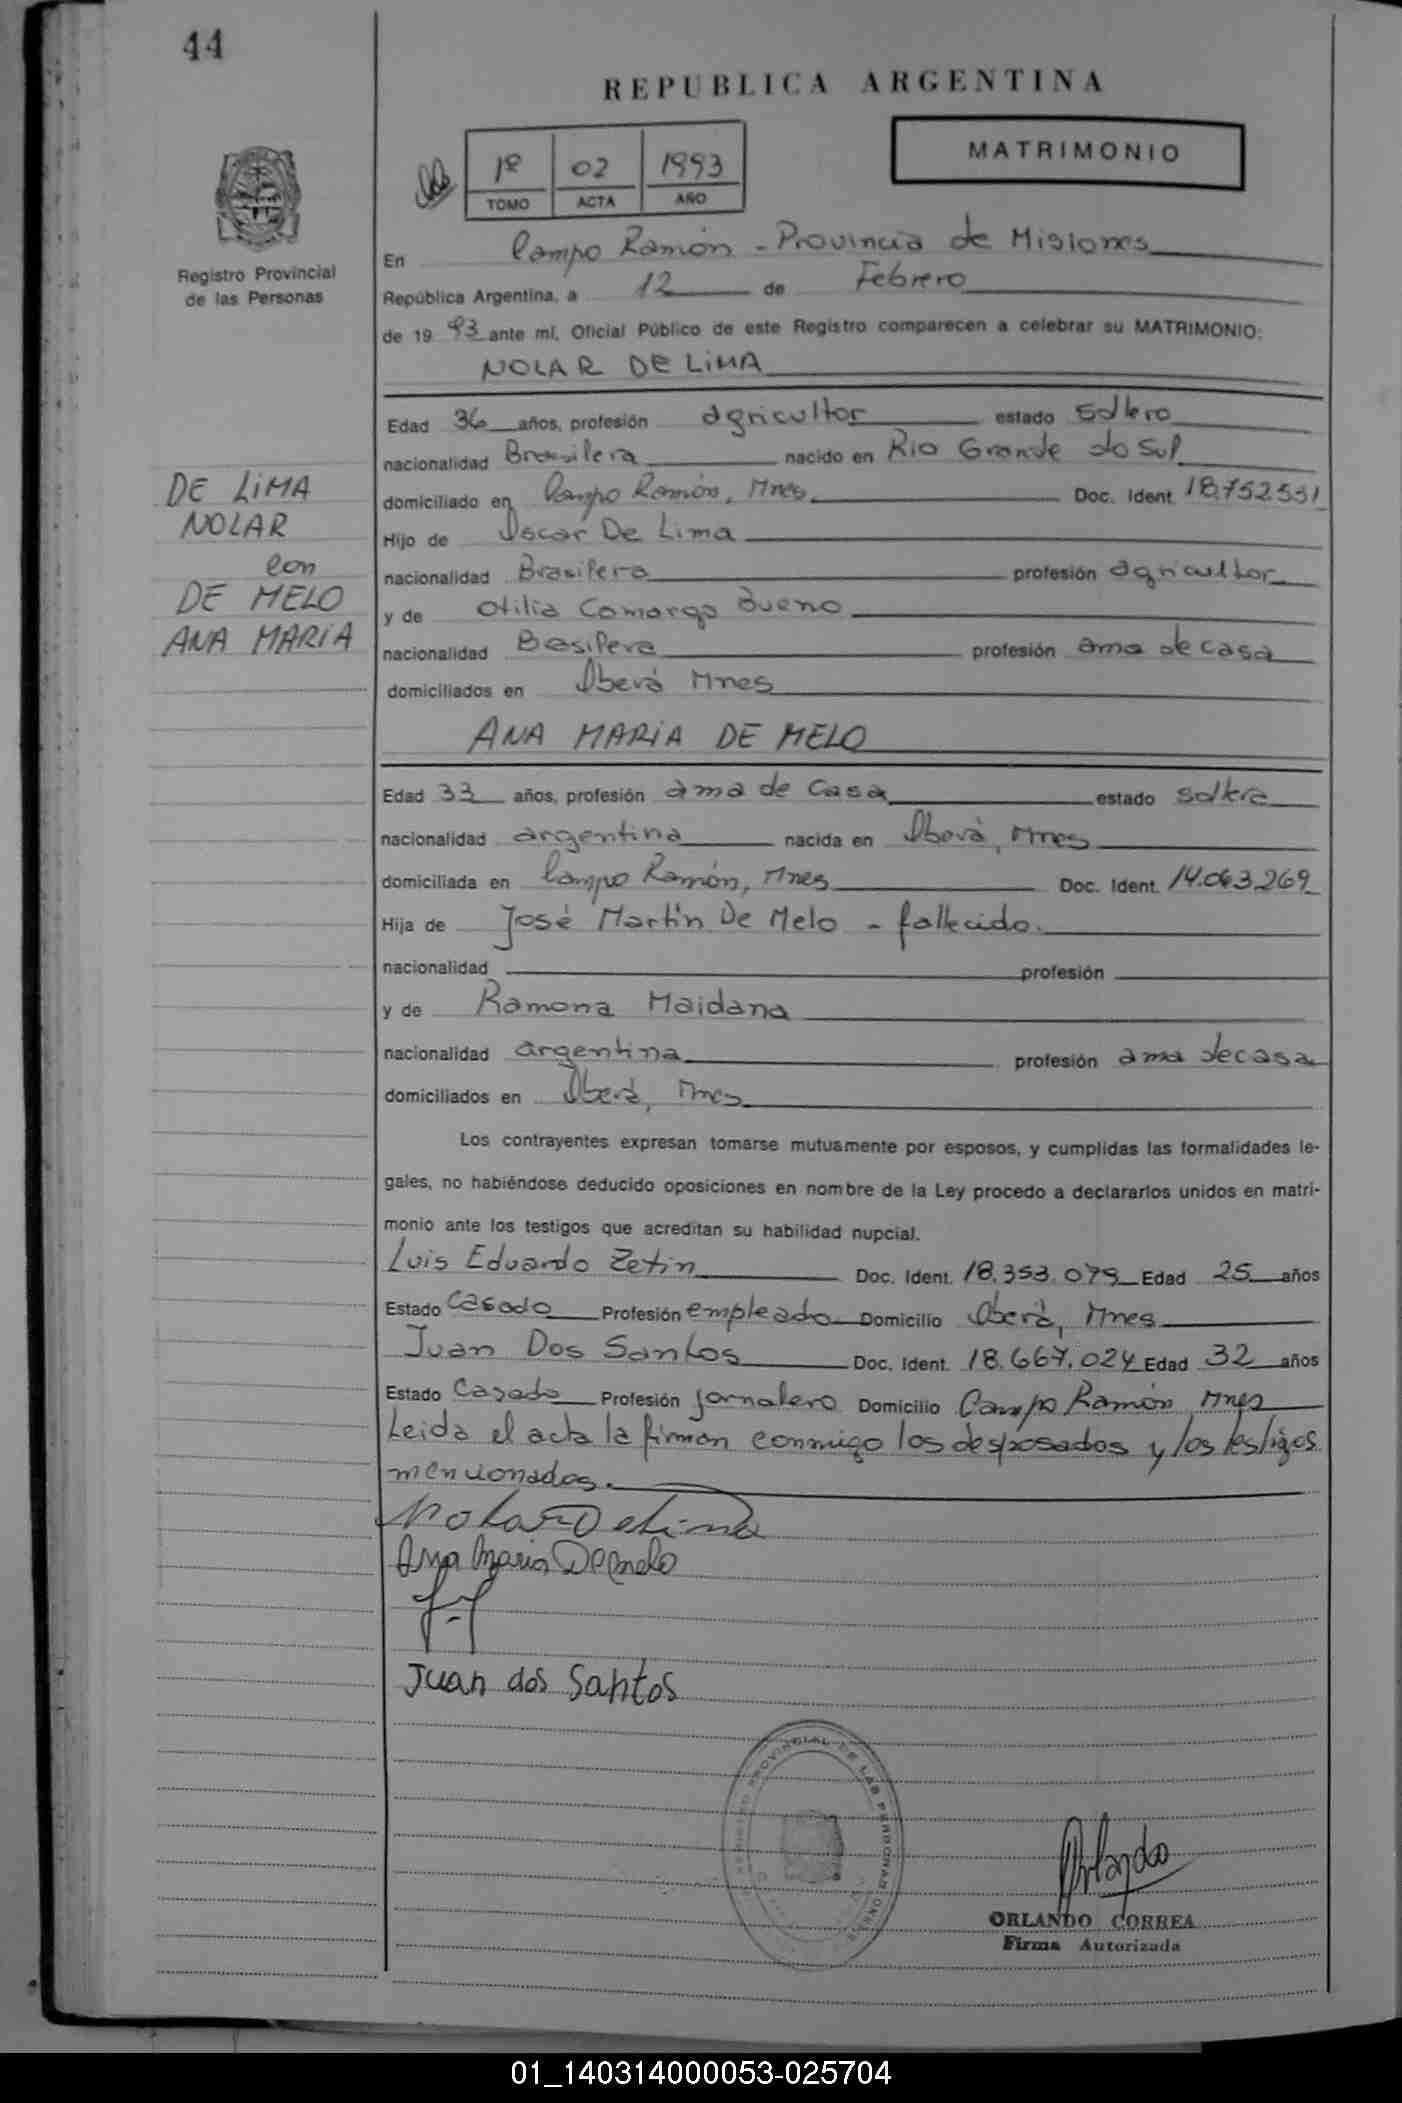 44
REPUBLICA ARGENTINA
1º 02 1993
TOMO ACTA AÑO
MATRIMONIO
Registro Provincial
de las Personas
En Campo Ramón - Provincia de Misiones
República Argentina, a 12 de Febrero
de 19 93 ante mí, Oficial Público de este Registro comparecen a celebrar su MATRIMONIO:
NOLAR DE LIMA
Edad 36 años, profesión agricultor estado soltero
nacionalidad Brasilera nacido en Rio Grande do Sul
domiciliado en Campo Ramón, Mnes Doc. Ident. 18.752.531
Hijo de Oscar De Lima
nacionalidad Brasilera profesión agricultor
y de Otilia Camargo Bueno
nacionalidad Brasilera profesión ama de casa
domiciliados en Oberá Mnes
DE LIMA
NOLAR
con
DE MELO
ANA MARIA
ANA MARIA DE MELO
Edad 33 años, profesión ama de casa estado soltera
nacionalidad argentina nacida en Oberá, Mnes
domiciliada en Campo Ramón, Mnes Doc. Ident. 14.063.269
Hija de José Martín De Melo - fallecido.
nacionalidad profesión
y de Ramona Maidana
nacionalidad argentina profesión ama de casa
domiciliados en Oberá, Mnes
Los contrayentes expresan tomarse mutuamente por esposos, y cumplidas las formalidades le-
gales, no habiéndose deducido oposiciones en nombre de la Ley procedo a declararlos unidos en matri-
monio ante los testigos que acreditan su habilidad nupcial.
Luis Eduardo Zetin Doc. Ident. 18.353.079 Edad 25 años
Estado Casado Profesión empleado Domicilio Oberá, Mnes
Juan Dos Santos Doc. Ident. 18.667.024 Edad 32 años
Estado Casado Profesión Jornalero Domicilio Campo Ramón Mnes
Leida el acta la firman conmigo los desposados y los testigos
mencionados.
Nolar De Lima
Ana Maria De melo
Juan dos Santos
REGISTRO PROVINCIAL DE LAS PERSONAS
Orlando
ORLANDO CORREA
Firma Autorizada
01_140314000053-025704